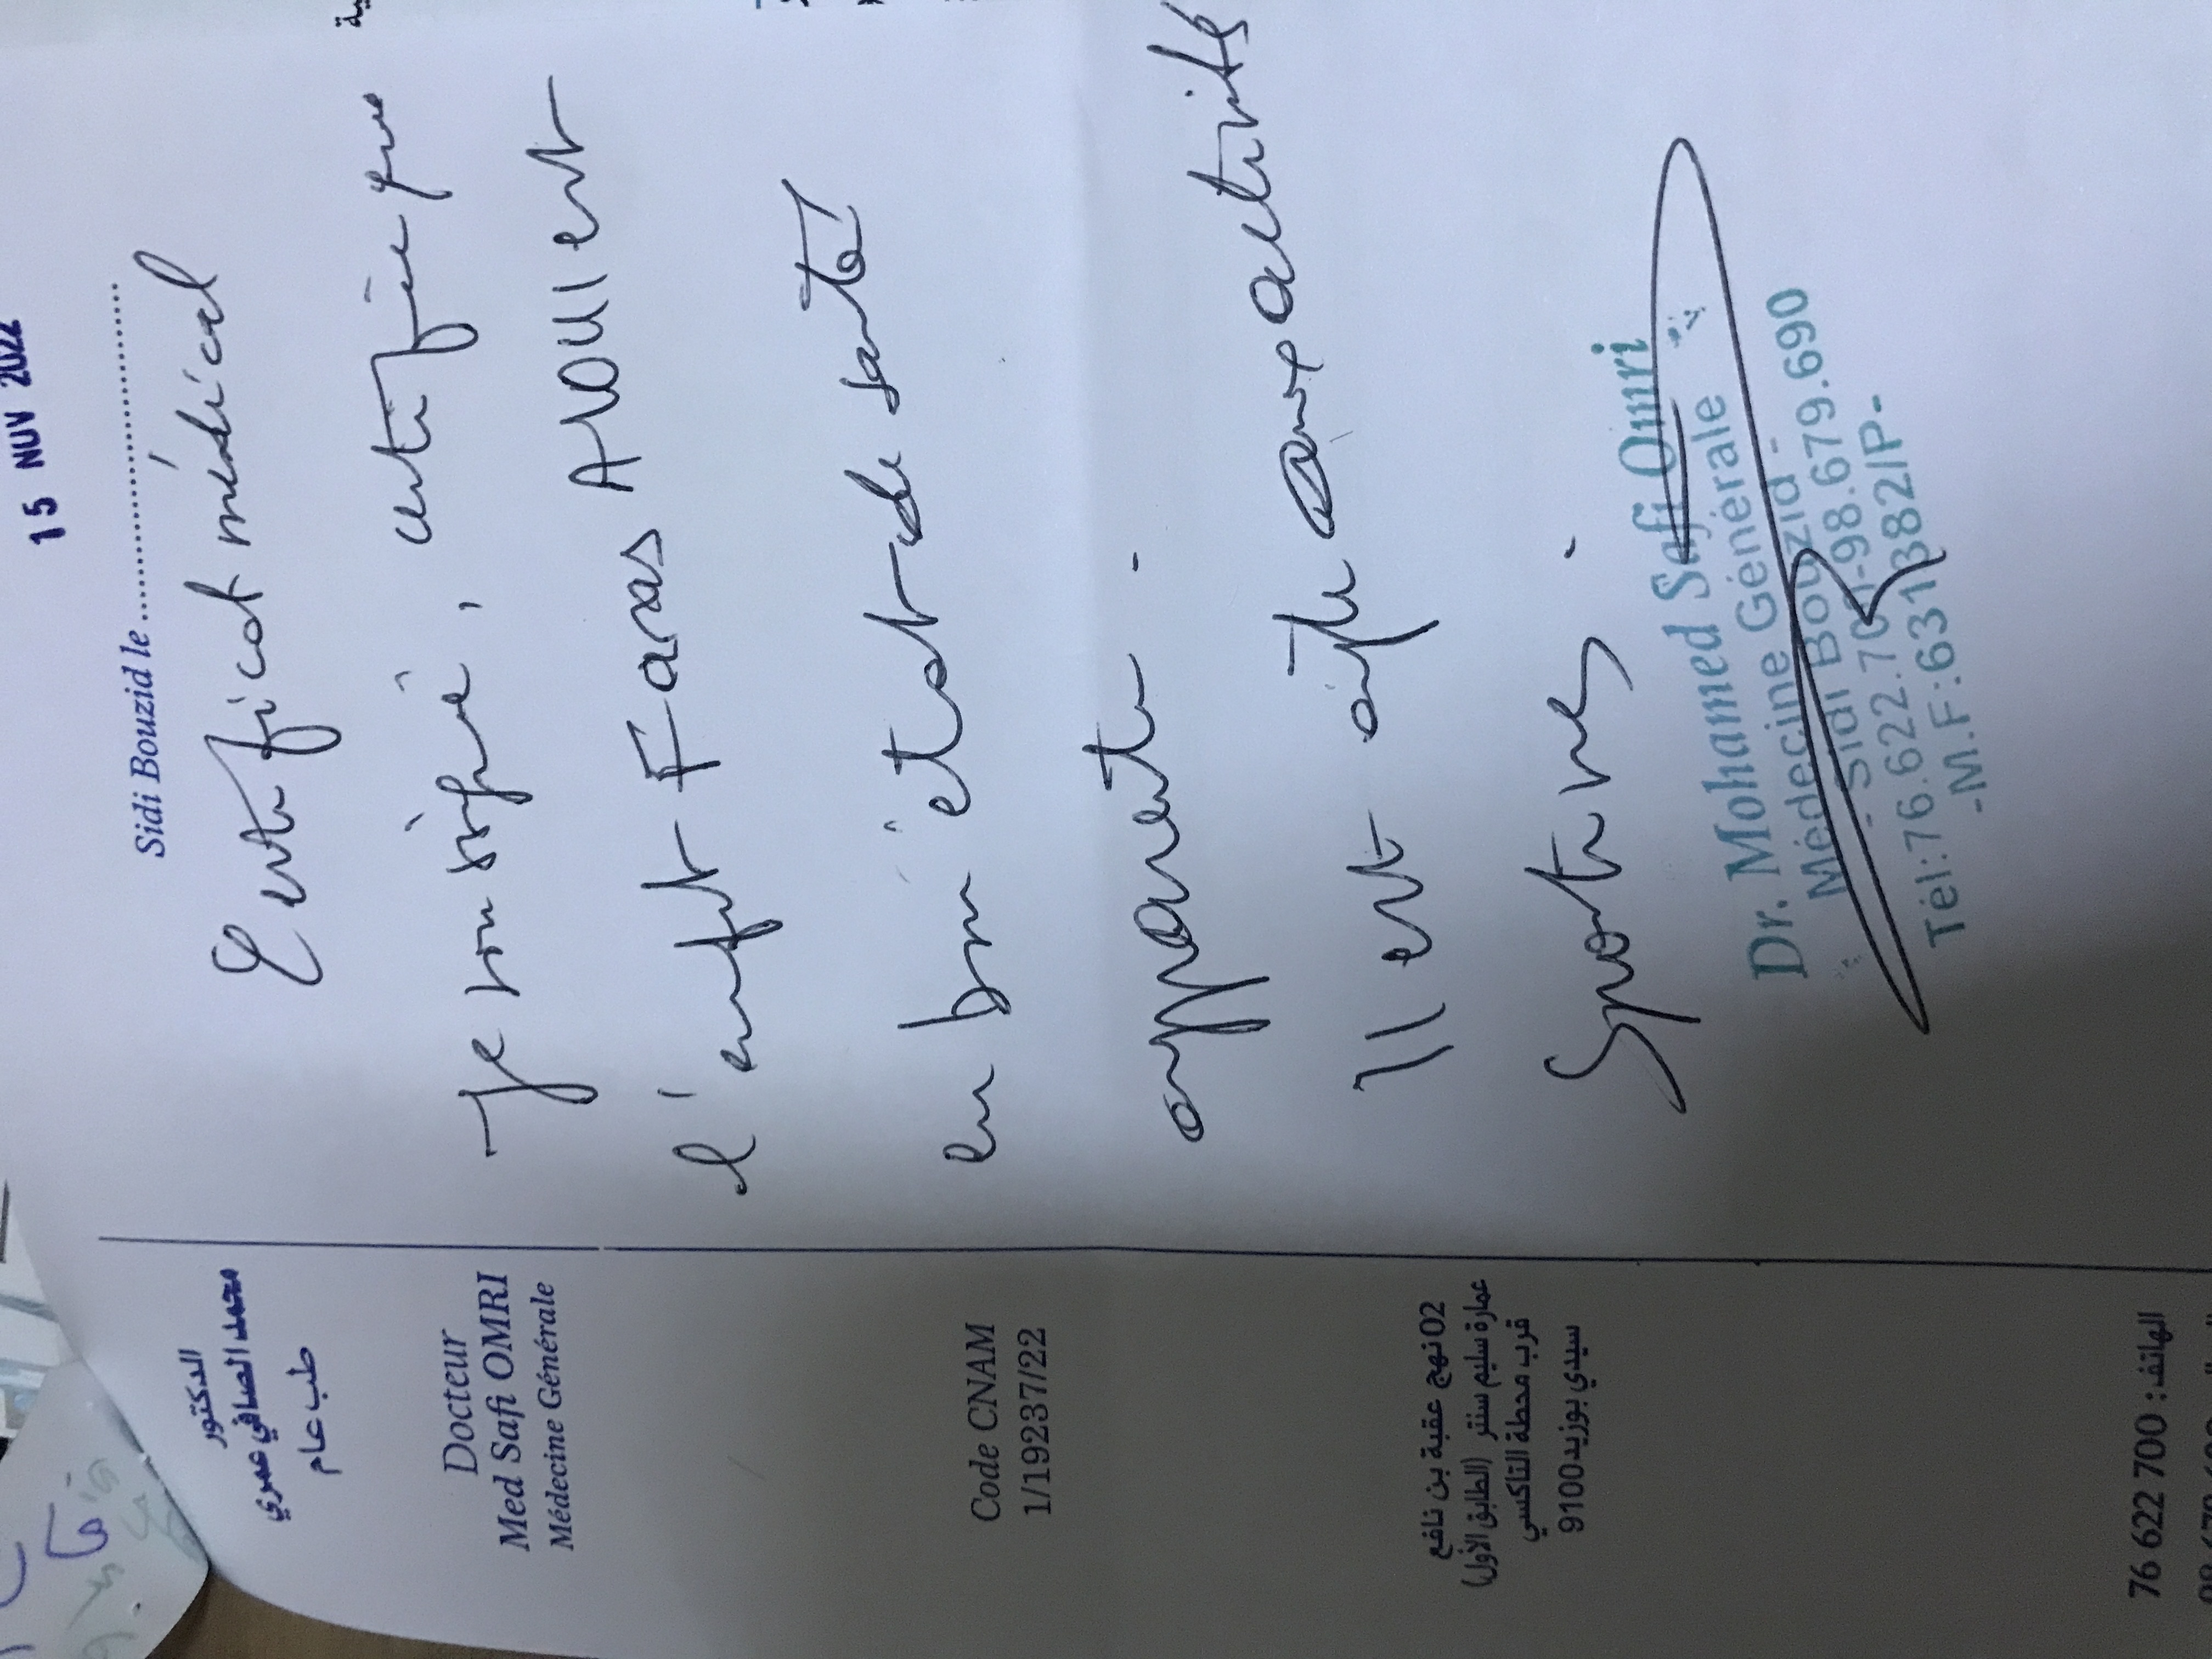 15 NOV 2022
Sidi Bouzid le
Certificat médical
Je soussigné, certifie que
l'enfant Faras AOUII est
en bon état de santé
apparente.
Il est apte aux activités
Sportives.
Dr. Mohamed Safi Omri
Médecine Générale
- Sidi Bouzid -
Tél:76.622.700-98.679.690
-M.F:631382/P-
الدكتور
محمد الصافي عمري
طب عام
Docteur
Med Safi OMRI
Médecine Générale
Code CNAM
1/19237/22
02 نهج عقبة بن نافع
عمارة سليم سنتر (الطابق الأول)
قرب محطة التاكسي
سيدي بوزيد 9100
الهاتف : 76 622 700